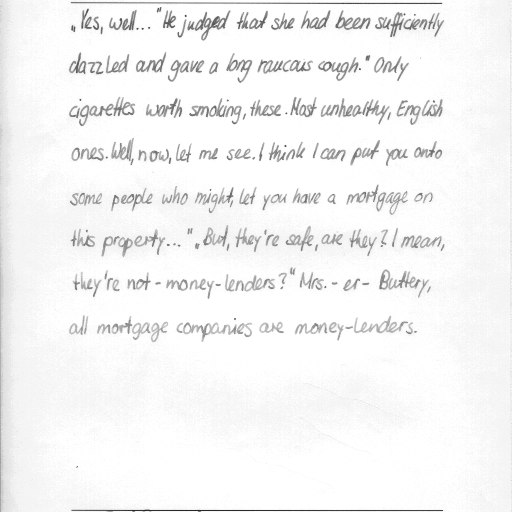 „Yes, well..." He judged that she had been sufficiently
dazzled and gave a long raucous cough." Only
cigarettes worth smoking, these. Most unhealthy, English
ones. Well, now, let me see. I think I can put you onto
some people who might, let you have a mortgage on
this property..." „But, they're safe, are they? I mean,
they're not - money-lenders?" Mrs. - er - Buttery,
all mortgage companies are money-lenders.